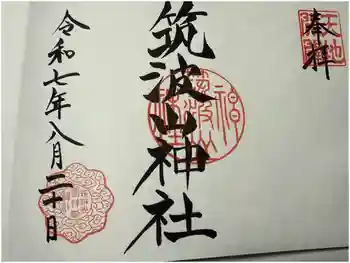 奉拝
筑波山神社
令和七年八月二十日